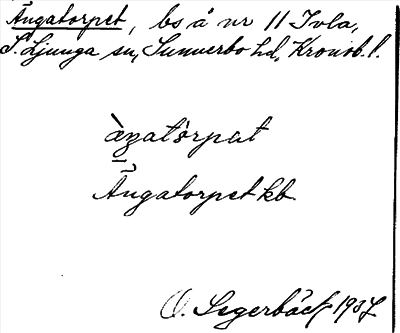 Ängatorpet, bs å nr 11 Ivla,
S. Ljunga sn, Sunnerbo hd, Kronob. l.
Ängatorpet kb
O. Segerbäck 1937